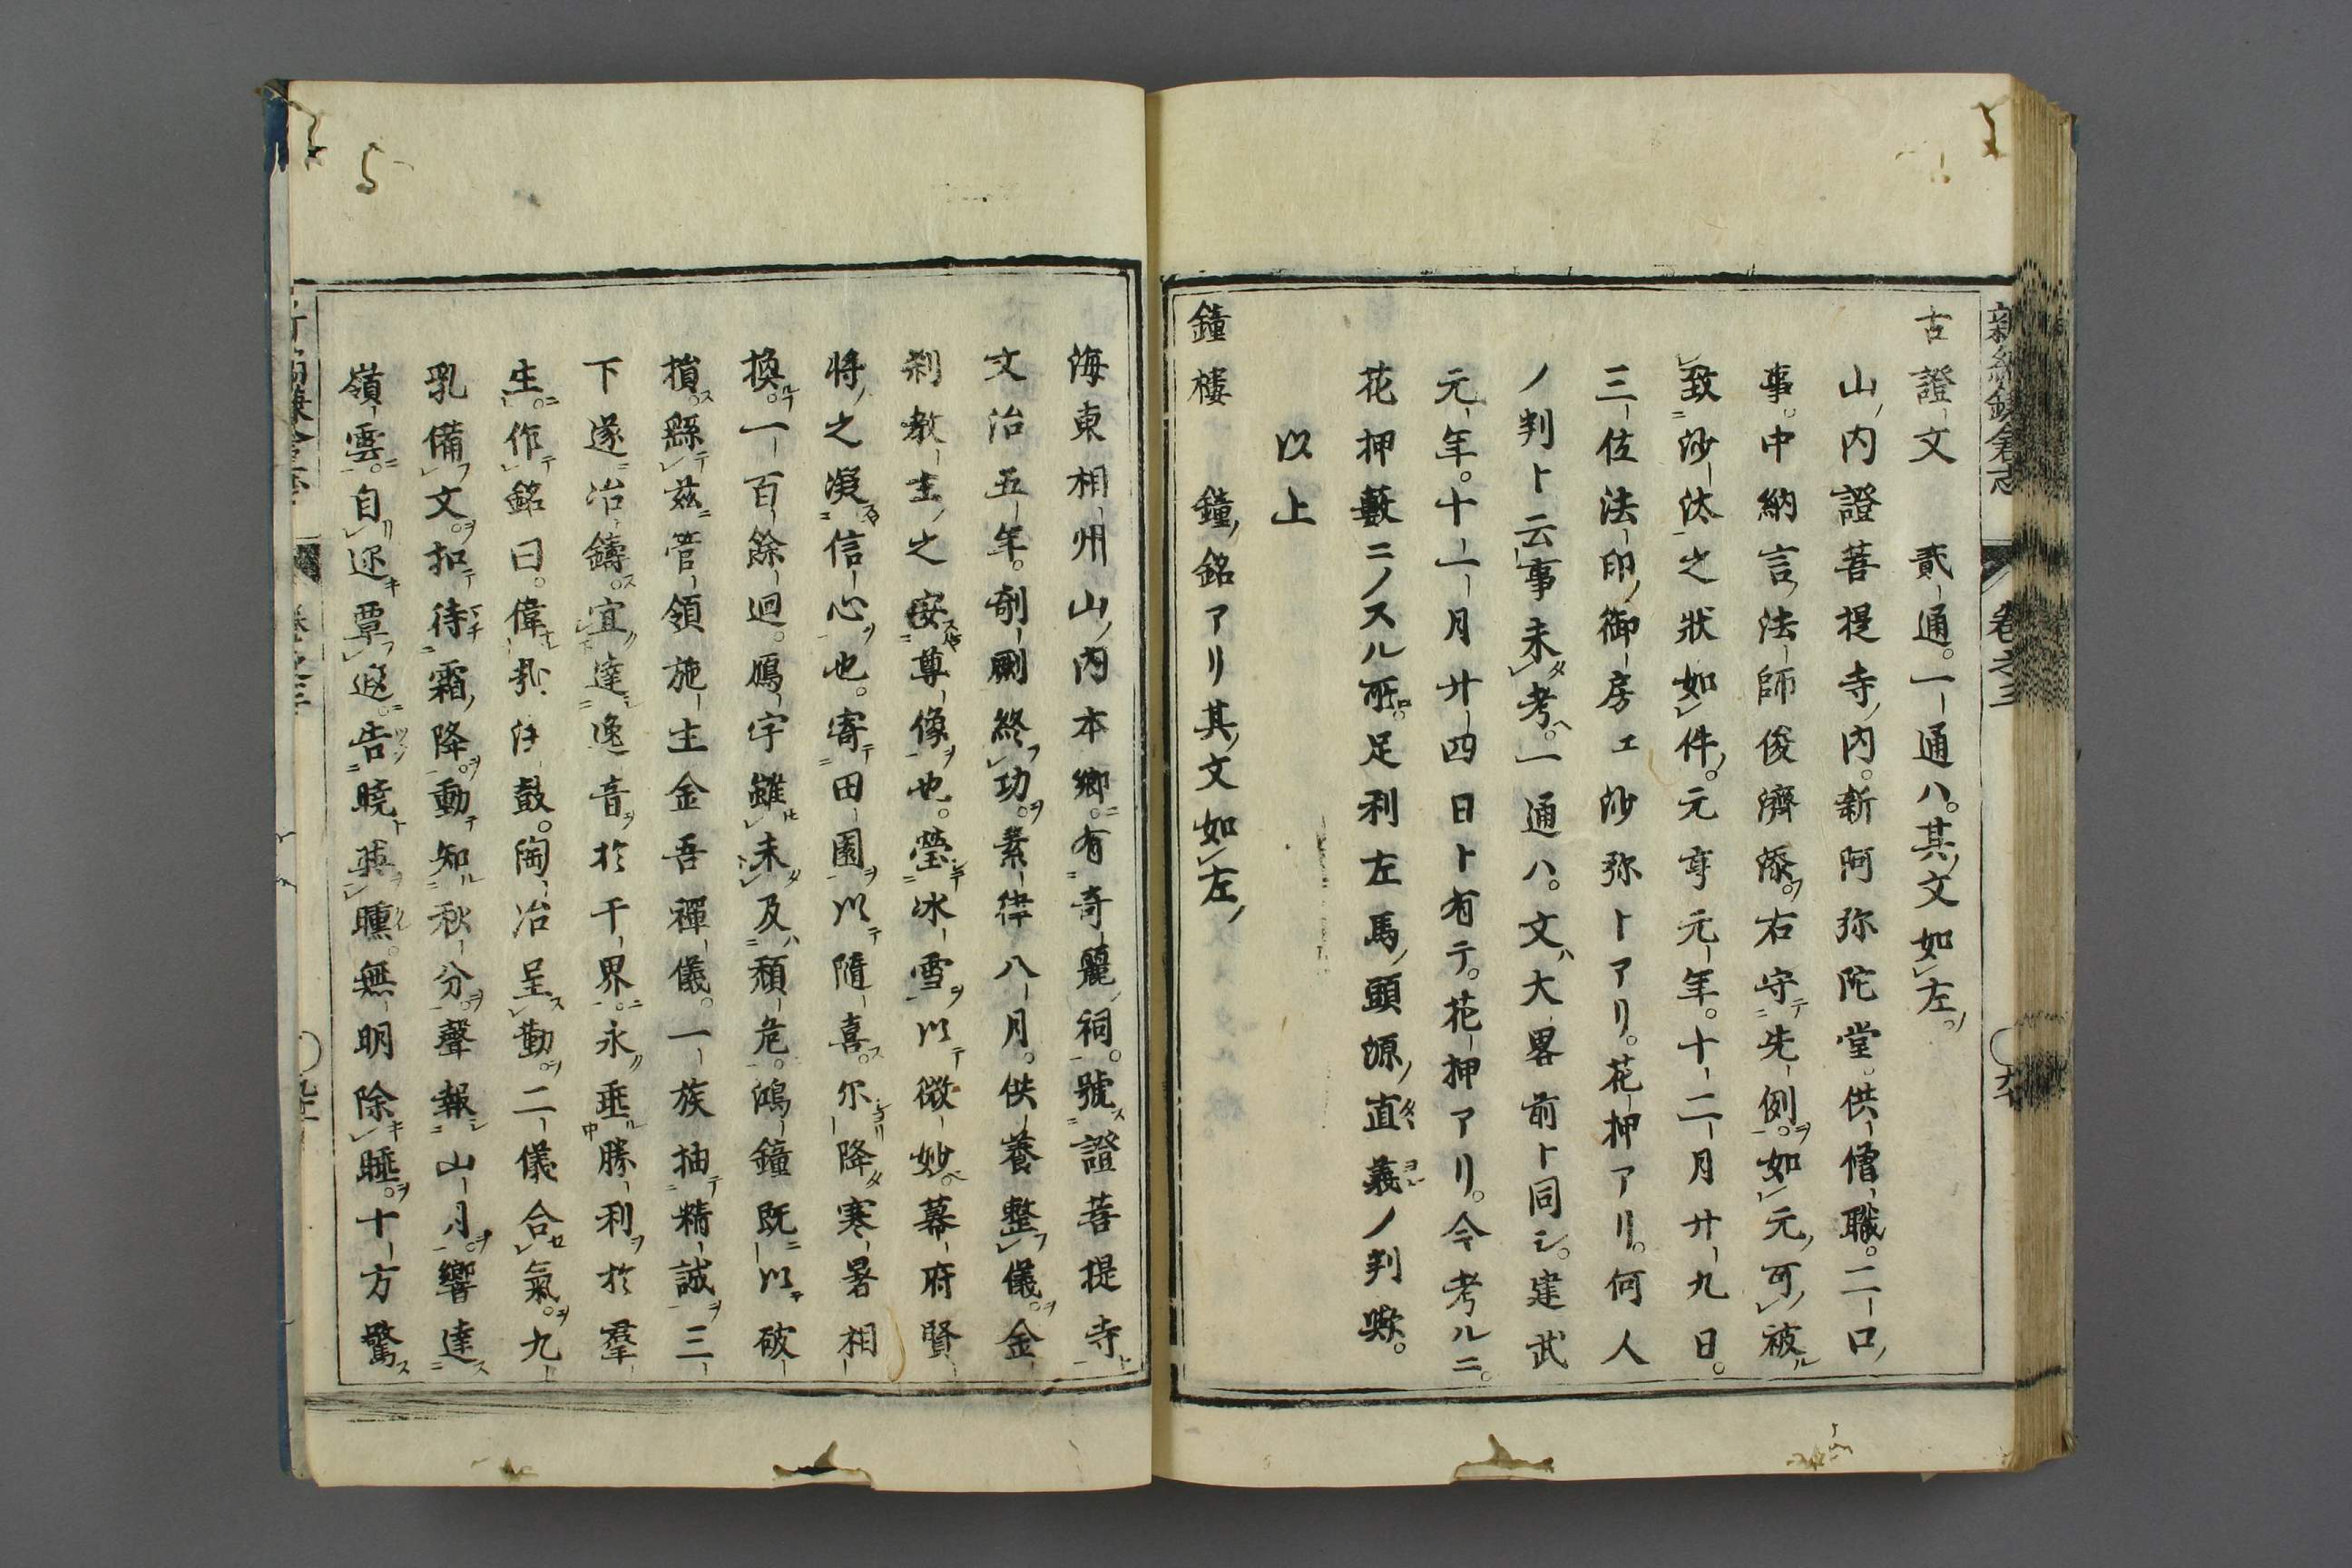 新編鎌倉志　卷之三
古證文　貳通。一通ハ。其文如左。
山内證菩提寺内。新阿弥陀堂。供僧職。二口
事。中納言法師俊濟㴞。右守先例。如元可被
致沙汰之狀如件。元亨元年。十二月廿九日。
三位法印御房エ沙弥トアリ。花押アリ。何人
ノ判ト云事未考。一通ハ。文大畧前ト同シ。建武
元年。十一月廿四日ト有テ。花押アリ。今考ルニ。
花押藪ニノスル所。足利左馬頭源直義ノ判歟。
以上
鐘樓　鐘銘アリ其文如左
海東相州山内本郷。有奇麗祠。號證菩提寺
文治五年。剞劂終功。素律八月。供養整儀。金
刹敎主之安尊像也。瑩冰雪以微妙。幕府賢
將之凝信心也。寄田園以隨喜。尓降寒暑相
換。一百餘迴。鴈宇雖未及頽危。鴻鐘既以破
損。繇茲菅領施主金吾禪儀。一族抽精誠三
下遂冶鑄。宜達逸音於干界。永垂勝利於羣
生。作銘曰。偉
鼓。陶冶呈勤。二儀合氣。九
乳備文。扣待霜降。動知秋分。聲報山月。響達
嶺雲。自迩覃遐。告曉
曛。無明除睡。十方驚